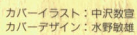 カバーイラスト：中沢数宣
カバーデザイン：水野敏雄